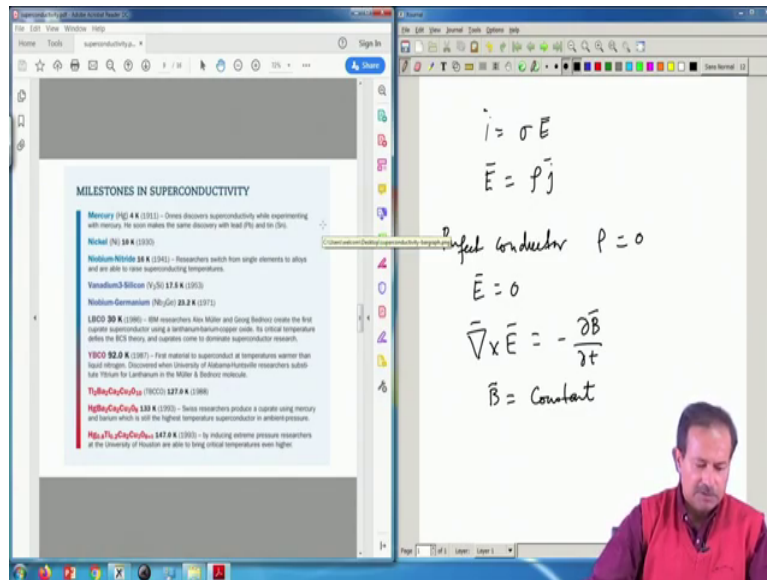 superconductivity.pdf - Adobe Acrobat Reader DC
File Edit View Window Help
Home Tools superconductivity.p... × Sign In
Share
MILESTONES IN SUPERCONDUCTIVITY
Mercury (Hg) 4 K (1911) – Onnes discovers superconductivity while experimenting
with mercury. He soon makes the same discovery with lead (Pb) and tin (Sn).
Nickel (Ni) 10 K (1930)
Niobium-Nitride 16 K (1941) – Researchers switch from single elements to alloys
and are able to raise superconducting temperatures.
Vanadium3-Silicon (V₃Si) 17.5 K (1953)
Niobium-Germanium (Nb₃Ge) 23.2 K (1971)
LBCO 30 K (1986) – IBM researchers Alex Müller and Georg Bednorz create the first
cuprate superconductor using a lanthanum-barium-copper oxide. Its critical temperature
defies the BCS theory, and cuprates come to dominate superconductor research.
YBCO 92.0 K (1987) – First material to superconduct at temperatures warmer than
liquid nitrogen. Discovered when University of Alabama-Huntsville researchers substi-
tute Yttrium for Lanthanum in the Müller & Bednorz molecule.
Tl₂Ba₂Ca₂Cu₃O₁₀ (TBCCO) 127.0 K (1988)
HgBa₂Ca₂Cu₃O₈ 133 K (1993) – Swiss researchers produce a cuprate using mercury
and barium which is still the highest temperature superconductor in ambient pressure.
147.0 K (1993) – by inducing extreme pressure researchers
at the University of Houston are able to bring critical temperatures even higher.
Xournal
File Edit View Journal Tools Options Help
Sans Normal 12
j̄ = σ Ē
Ē = ρ j̄
Perfect conductor ρ = 0
Ē = 0
∇̄ × Ē = - ∂B̄/∂t
B̄ = Constant
Page 1 of 1 Layer: Layer 1